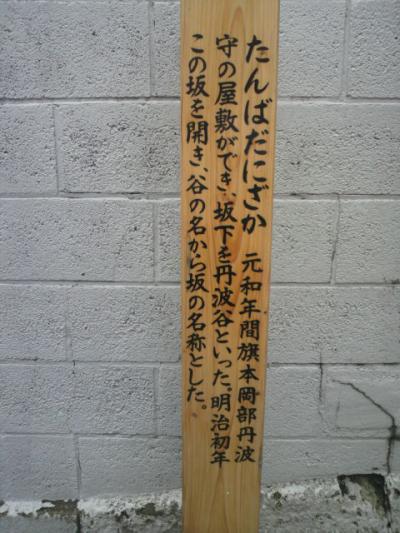 たんばだにざか 元和年間旗本岡部丹波
守の屋敷ができ、坂下を丹波谷といった。明治初年
この坂を開き、谷の名から坂の名称とした。